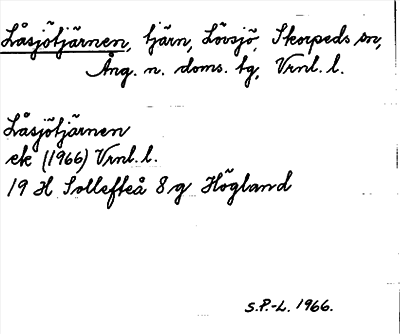 Låsjötjärnen, tjärn, Lövsjö, Skorpeds sn,
Ång. n. doms. tg, Vrnl. l.
Låsjötjärnen
ek (1966) Vrnl. l.
19 H Sollefteå 8 g Högland
S.P.-L. 1966.